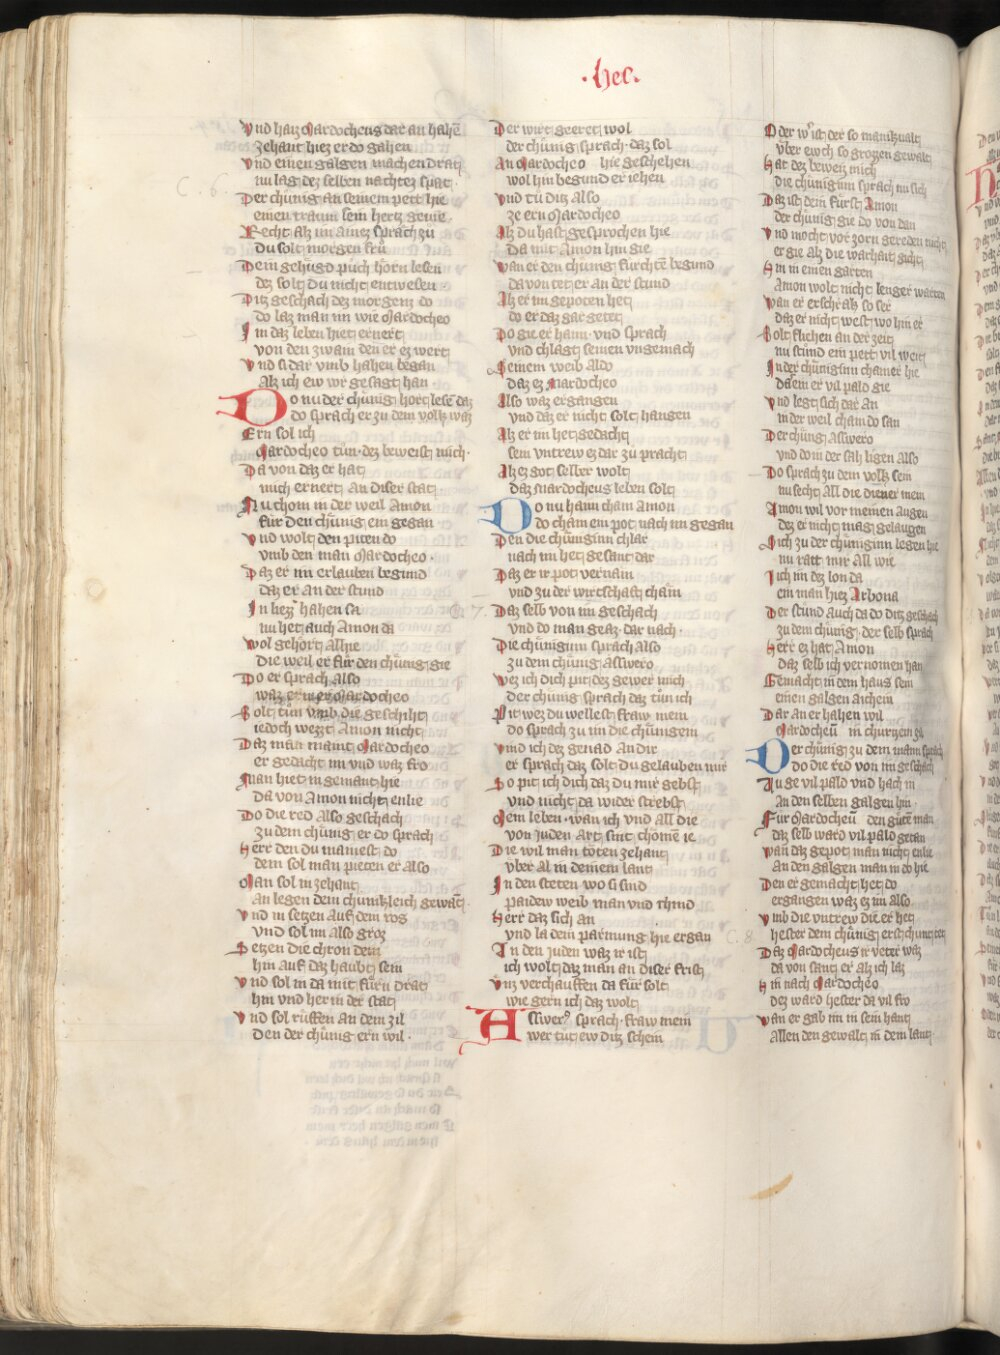 .hes.
Vnd haiz Mardocheus dar an hahen̄
Zehant hiez er do gahen
Vnd einen galgen machen drat
nu lag dez selben nachtez spat
Der chünig an seinem pett hie
einen traum sein hertz gevie
Recht alz im ainez sprach zu
du solt morgen frů
Dein gehügd půch hörn lesen
dez solt du nicht entwesen
Ditz geschach dez morgens do
do laz man im wie Mardocheo
In daz leben hiet ernert
von den zwain den er ez wert
Vnd si dar vmb hahen began
Alz ich ew vor gesagt han
Do nu der chünig hort lesen̄ daz
do sprach er zu dem volk waz
Ern sol ich
Mardocheo tůn dez beweist mich
Da von daz er hat
mich ernert An diser stat
Nu chom in der weil Amon
für den chünig ein gegan
Vnd wolt den piten do
vmb den man Mardocheo
Daz er im erlauben begund
daz er An der stund
In hezz hahen sa
nu het auch Amon da
Wol gehört Allhie
die weil er für den chünig gie
Do er sprach Also
waz er Mardocheo
Solt tůn vmb die geschiht
iedoch wezzt Amon nicht
Daz man maint Mardocheo
er gedacht im vnd waz fro
Man hiet in gemaint hie
da von Amon nicht enlie
Do die red Also geschach
zu dem chünig er do sprach
Herr den du mainest do
dem sol man pieten er also
Man sol in zehant
An legen dem chünikleich gewant
Vnd in setzen Auf dein ros
vnd sol im also groz
Setzen die chron dein
hin Auf daz haubt sein
Vnd sol in da mit fürn drat
hin vnd her in der stat
Vnd sol rüffen An dem zil
Den der chünig ern wil
Der wirt geeret wol
der chünig sprach daz sol
An Mardocheo hie geschehen
wol hin begund er iehen
Vnd tů ditz Also
ze ern Mardocheo
Alz du hast gesprochen hie
da mit Amon hin gie
Wan er den chünig fürchten̄ began̄d
da von tet er An der stund
Alz er im gepoten het
do er daz gar getet
Do gie er haim vnd sprach
vnd chlagt seinen vngemach
Seinem weib Aldo
daz ez Mardocheo
Also waz ergangen
vnd daz er nicht solt hangen
Alz er im het gedacht
sein vntrew ez dar zu pracht
Alz ez got selber wolt
daz Mardocheus leben solt
Do nu haim cham Amon
do cham ein pot nach im gegan
Den die chüniginn chlar
nach im het gesant dar
Daz er ir pot vernam
vnd zu der wirtschaft cham
Daz selb von im geschach
vnd do man geaz dar nach
Die chüniginn sprach also
zu dem chünig Asswero
Wez ich dich pit dez gewer mich
der chünig sprach daz tůn ich
Pit wez du wellest fraw mein
do sprach zu im die chünigein
Vind ich dez genad An dir
er sprach daz solt du gelauben mir
So pit ich dich daz du mir gebst
vnd nicht da wider strebst
Mein leben wan ich vnd all die
von juden Art sint chomen ie
Die wil man töten zehant
vber al in deinem lant
In den steten wo si sind
paidew weib man vnd chind
Herr daz sich an
vnd la dein parmung hie ergan
An den juden waz ir ist
ich wolt daz man an diser frist
Vnz verchauffen da für solt
wie gern ich daz wolt
Asswerus sprach fraw mein
wer tůt ew ditz schein
Oder wer ist der so manikualt
vber ewch so grozzen gewalt
Hat dez beweiz mich
die chüniginn sprach nu sich
Daz ist dein fürst Amon
der chünig gie do von dan
Vnd mocht vor zorn gereden nicht
er gie alz die warhait gicht
Hin in einen garten
Amon wolt nicht lenger warten
Wan er erschrak so ser
daz er nicht west wo hin er
Solt fliehen an der zeit
nu stund ein pett vil weit
In der chüniginn chamer hie
da ein er vil pald gie
Vnd legt sich dar An
in der weil cham do san
Der chünig Asswero
vnd do in der sah ligen Also
Do sprach zu dem volk sein
nu secht All die diener mein
Amon wil vor meinen augen
dez er nicht mag gelaugen
Sich zu der chüniginn legen hie
nu ratt mir All wie
Ich im dez lon da
ein man hiez Arbona
Der stund auch da do ditz geschach
zu dem chünig der selb sprach
Herr ez hat Amon
daz selb ich vernomen han
Gemacht in dem haus sein
einen galgen aichein
Dar an er hahen wil
Mardocheū in churtzem zil
Der chünig zu dem mann sprach
do die red von im geschach
Nu ge vil pald vnd hach in
An den selben galgen hin
Für Mardocheū den gůten man
daz selb ward vil pald getan
Wan̄ daz gepot man nicht enlie
An den galgen man in do hie
Den er gemacht het do
ergangen waz ez im also
Vmb die vntrew die er het
hester dem chünig
Daz Mardocheus ir veter waz
da von sant er alz ich laz
Hin nach Mardocheo
dez ward hester da vil fro
Wan er gab im in sein hant
Allen den gewalt in dem lant